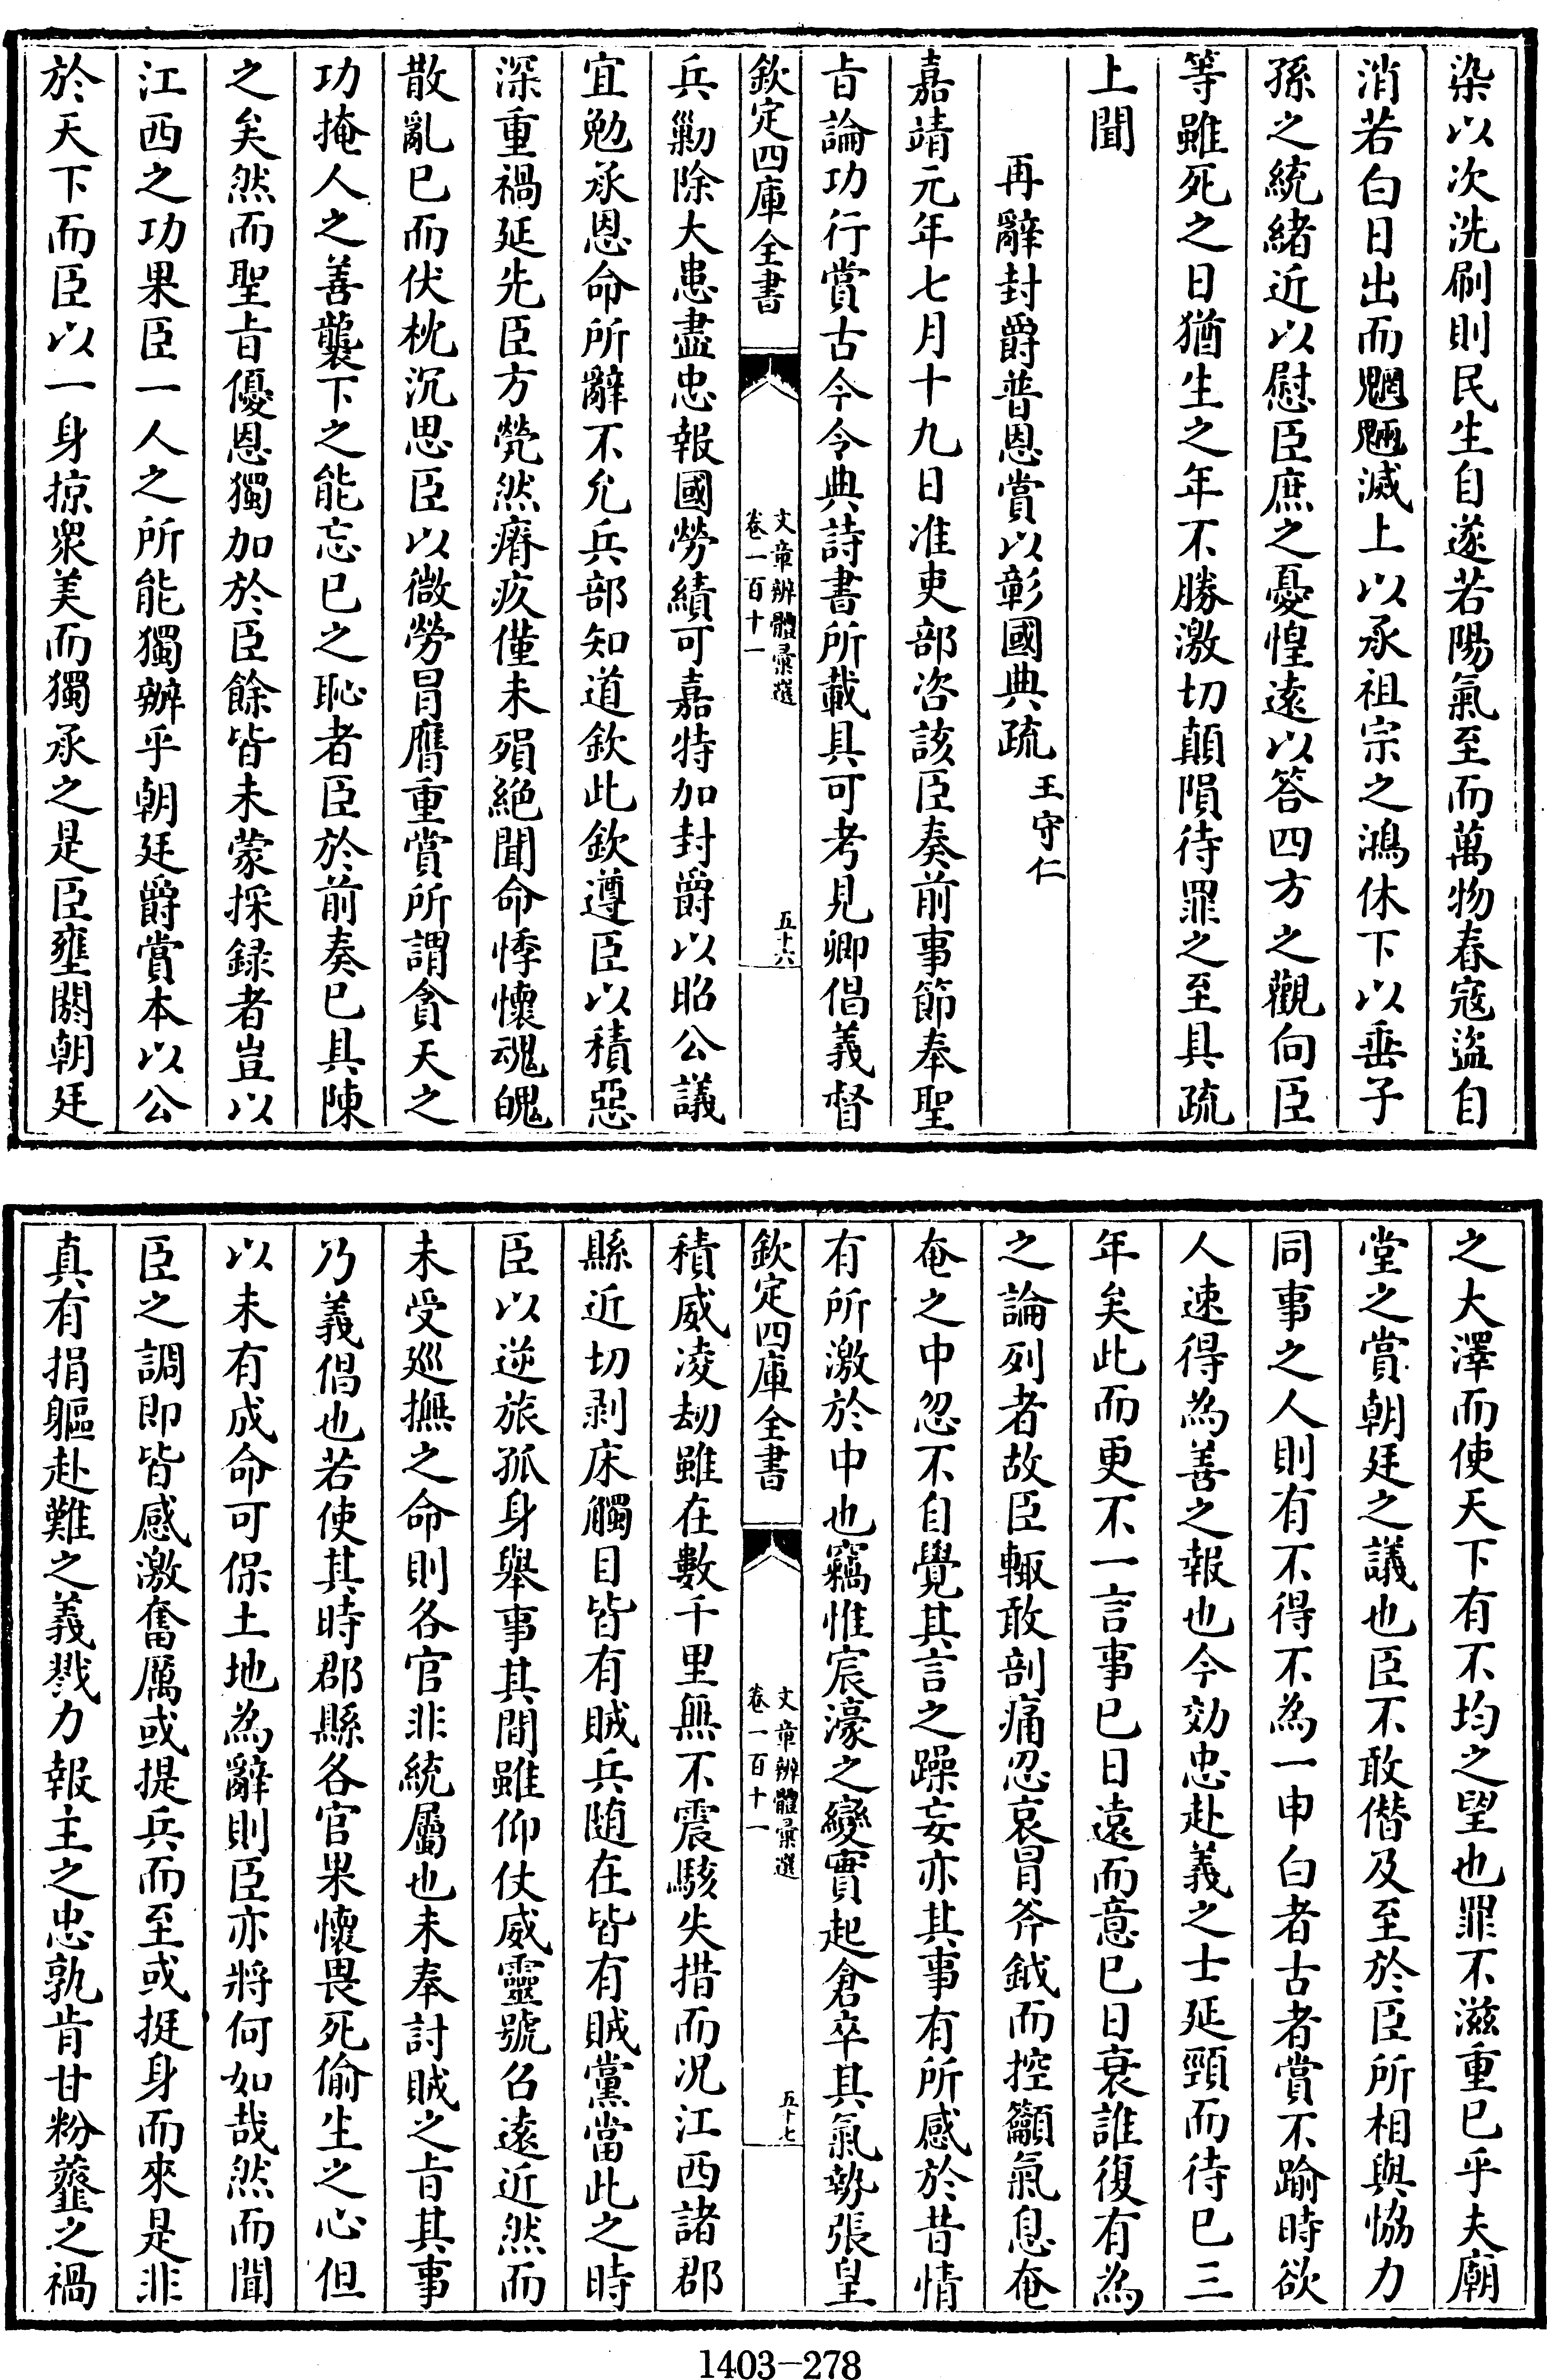 染以次洗刷則民生自遂若陽氣至而萬物春寇盜自
消若白日出而魍魎滅上以承祖宗之鴻休下以垂子
孫之統緒近以慰臣庶之憂惶遠以答四方之觀向臣
等雖死之日猶生之年不勝激切顛隕待罪之至具疏
上聞
再辭封爵普恩賞以彰國典疏 王守仁
嘉靖元年七月十九日准吏部咨該臣奏前事節奉聖
㫖論功行賞古今令典詩書所載具可考見卿倡義督
欽定四庫全書 文章辨體彙選 卷一百十一 五十六
兵勦除大患盡忠報國勞績可嘉特加封爵以昭公議
宜勉承恩命所辭不允兵部知道欽此欽遵臣以積惡
深重禍延先臣方煢然瘠疚僅未殞絶聞命悸懷魂魄
散亂已而伏枕沉思臣以微勞冒膺重賞所謂貪天之
功掩人之善襲下之能忘已之恥者臣於前奏已具陳
之矣然而聖㫖優恩獨加於臣餘皆未蒙採録者豈以
江西之功果臣一人之所能獨辦乎朝廷爵賞本以公
於天下而臣以一身掠衆美而獨承之是臣壅閼朝廷
之大澤而使天下有不均之望也罪不滋重已乎夫廟
堂之賞朝廷之議也臣不敢僭及至於臣所相與恊力
同事之人則有不得不為一申白者古者賞不踰時欲
人速得為善之報也今効忠赴義之士延頸而待已三
年矣此而更不一言事已日遠而意已日衰誰復有為
之論列者故臣輒敢剖痛忍哀冒斧鉞而控籲氣息奄
奄之中忽不自覺其言之躁妄亦其事有所感於昔情
有所激於中也竊惟宸濠之變實起倉卒其氣勢張皇
欽定四庫全書 文章辨體彙選 卷一百十一 五十七
積威凌刼雖在數千里無不震駭失措而况江西諸郡
縣近切剥床觸目皆有賊兵随在皆有賊黨當此之時
臣以逆旅孤身舉事其間雖仰仗威靈號召遠近然而
未受廵撫之命則各官非統屬也未奉討賊之㫖其事
乃義倡也若使其時郡縣各官果懷畏死偷生之心但
以未有成命可保土地為辭則臣亦將何如哉然而聞
臣之調即皆感激奮厲或提兵而至或挺身而來是非
真有捐軀赴難之義戮力報主之忠孰肯甘粉虀之禍
1403-278